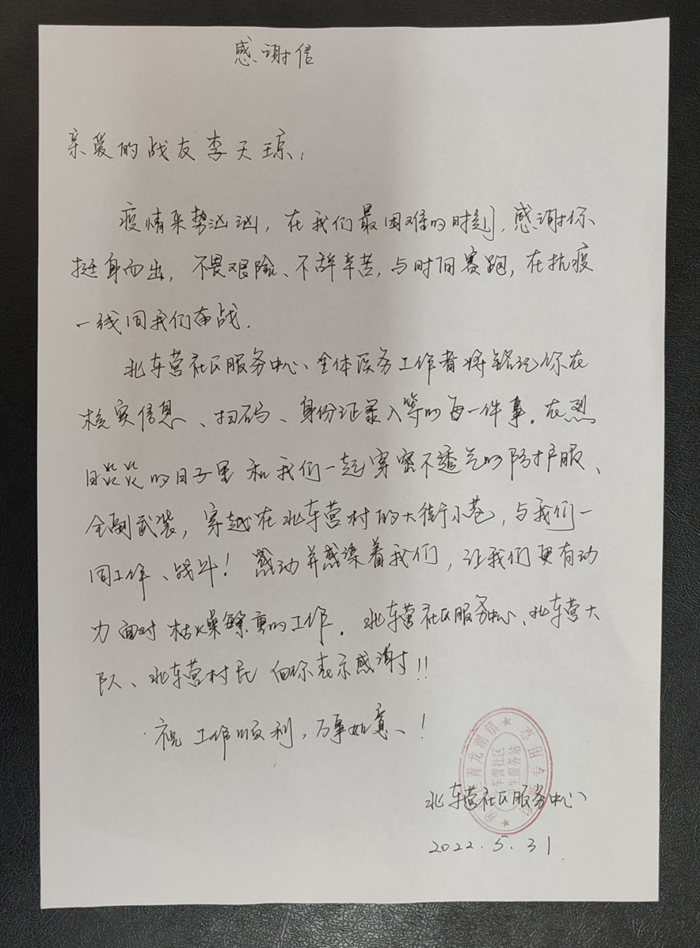 感谢信
亲爱的战友李天琼：
疫情来势汹汹，在我们最困难的时刻，感谢你
挺身而出，不畏艰险、不辞辛苦，与时间赛跑，在抗疫
一线同我们奋战.
北车营社区服务中心、全体医务工作者将铭记你在
核实信息、扫码、身份证录入等的每一件事。在烈
日炎炎的日子里和我们一起穿密不透气的防护服、
全副武装，穿越在北车营村的大街小巷，与我们一
同工作、战斗！感动并感染着我们，让我们更有动
力面对枯燥繁重的工作。北车营社区服务中心、北车营大
队、北车营村民向你表示感谢!!
祝工作顺利，万事如意！
青龙湖镇
车营社区
生服务站
专用
北车营社区服务中心
2022.5.31